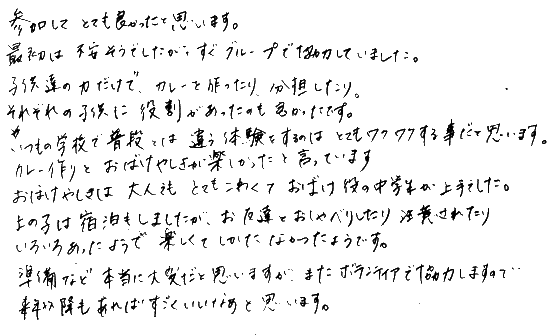 参加して とても良かったと思います。
最初は 不安そうでしたが、すぐグループで協力していました。
子供達の力だけで、カレーを作ったり、分担したり。
それぞれの子供に 役割があったのも良かったです。
いつもの学校で普段とは 違う体験をするのは とてもワクワクする事だと思います。
カレー作りと おばけやしきが楽しかったと言っています
おばけやしきは 大人でも とてもこわくて おばけ役の中学生が上手でした。
上の子は宿泊もしましたが、お友達とおしゃべりしたり 注意されたり
いろいろあったようで 楽しくてしかたなかったようです。
準備など 本当に大変だと思いますが、またボランティアで協力しますので
来年以降もあればすごくいいなあと思います。